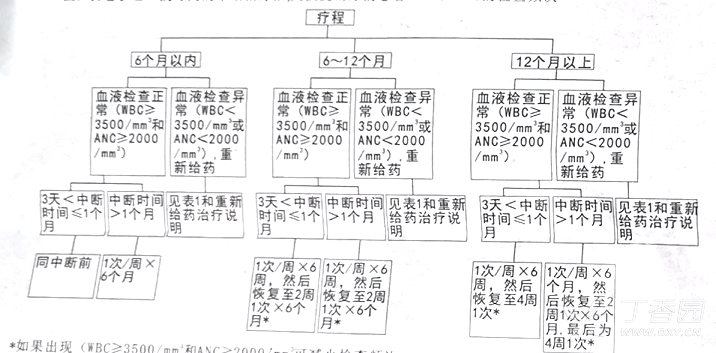 疗程
6个月以内
6～12个月
12个月以上
血液检查正
常（WBC≥
3500/mm³和
ANC≥2000
/mm³）
血液检查异
常（WBC<
3500/mm³或
ANC<2000
/mm³），重
新给药
血液检查正
常（WBC≥
3500/mm³和
ANC≥2000
/mm³）
血液检查异
常（WBC<
3500/mm³或
ANC<2000
/mm³），重
新给药
血液检查正
常（WBC≥
3500/mm³和
ANC≥2000
/mm³）
血液检查异
常（WBC<
3500/mm³或
ANC<2000
/mm³），重
新给药
3天＜中断
时间≤1个
月
中断时间
>1个月
见表1和重新
给药治疗说
明
3天＜中断
时间≤1个
月
中断时间
>1个月
见表1和重新
给药治疗说
明
3天＜中断
时间≤1个
月
中断时间
>1个月
见表1和重新
给药治疗说
明
同中断前
1次/周×
6个月
1次/周×6
周，然后
恢复至2周
1次×6个
月*
1次/周×6
周，然后
恢复至2周
1次×6个
月*
1次/周×6
周，然后
恢复至4周
1次*
1次/周×6
个月，然
后恢复至2
周1次×6个
月,最后为
4周1次*
*如果出现（WBC≥3500/mm³和ANC≥2000/mm³可减少检查频
丁香园